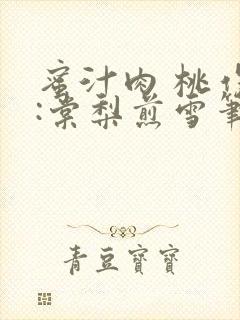 蜜汁肉桃作
:棠梨煎雪笔
青豆寶寶